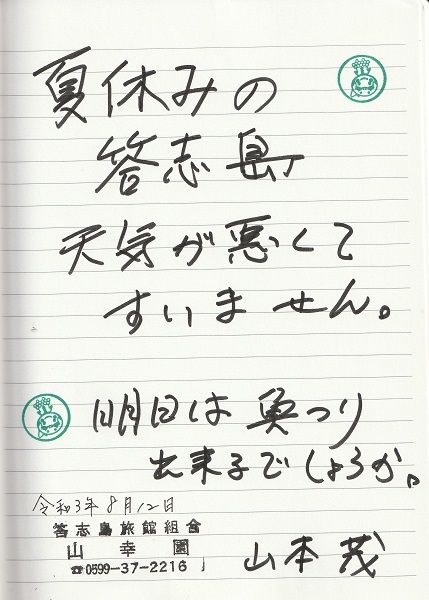 夏休みの
答志島
天気が悪くて
すいません。
明日は魚つり
出来るでしょうか。
令和3年8月12日
答志島旅館組合
山幸園
☎0599-37-2216
山本茂